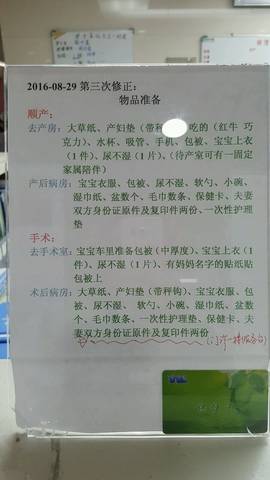 2016-08-29 第三次修正:
物品准备
顺产:
去产房: 大草纸、产妇垫(带秤 吃的(红牛 巧
克力)、水杯、吸管、手机、包被、宝宝上衣
(1件)、尿不湿(1片)、(待产室可有一固定
家属陪伴)
产后病房: 宝宝衣服、包被、尿不湿、软勺、小碗、
湿巾纸、盆数个、毛巾数条、保健卡、夫妻
双方身份证原件及复印件两份、一次性护理
垫
手术:
去手术室: 宝宝车里准备包被(中厚度)、宝宝上衣(1
件)、尿不湿(1片)、有妈妈名字的贴纸贴
包被上
术后病房: 大草纸、产妇垫(带秤钩)、宝宝衣服、包
被、尿不湿、 软勺、小碗、湿巾纸、盆数
个、毛巾数条、一次性护理垫、保健卡、夫
妻双方身份证原件及复印件两份